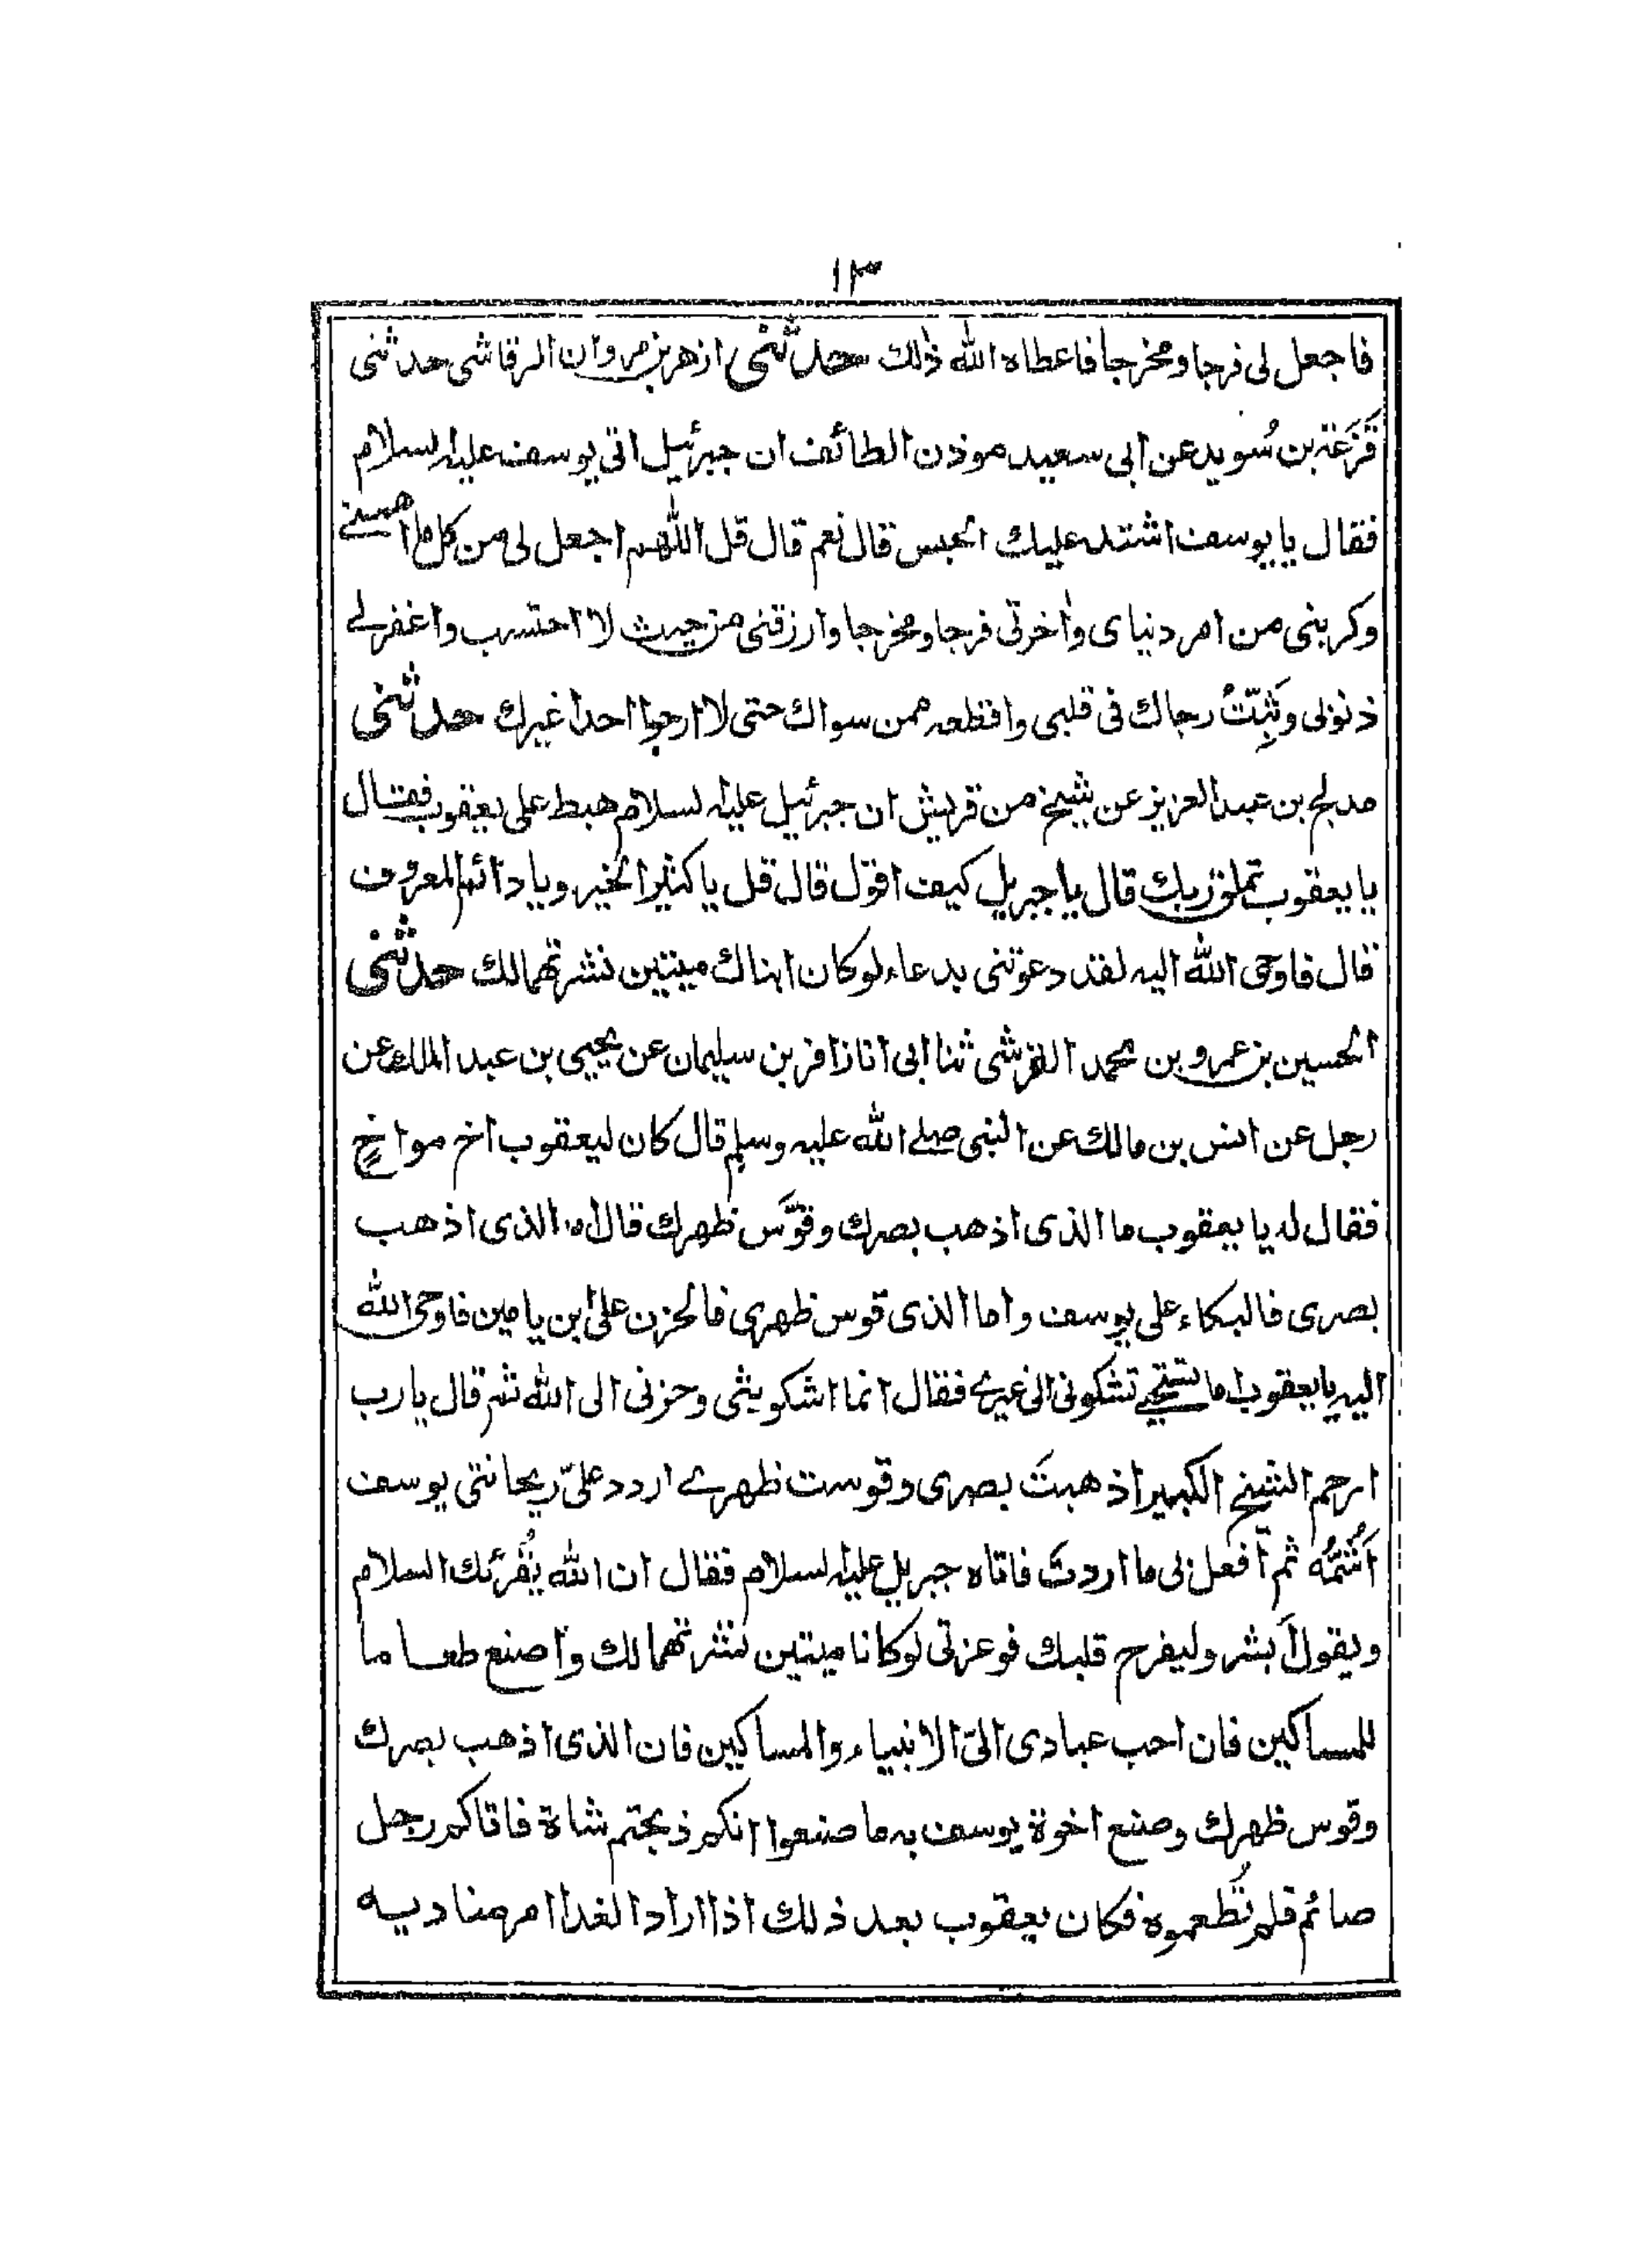 ١٣
فاجعل لى فرجا ومخرجا فاعطاه الله ذلك حدثنى ازهر بن مروان الرقاشى حدثنى
قَزَعَة بن سُويد عن ابى سعيد موذن الطائف ان جبرئيل اتى يوسف عليه السلام
فقال يا يوسف اشتد عليك الحبس قال نعم قال قل اللهم اجعل لى من كل ما اهمنے
وكربنى من امر دنياى واخرتى فرجا ومخرجا وارزقنى من حيث لا احتسب واغفرلے
ذنوبى وثَبِّتْ رجاك فى قلبى واقطعه ممن سواك حتى لا ارجوا احدا غيرك حدثنى
مدلج بن عبد العزيز عن شيخ من قريش ان جبرئيل عليه السلام هبط على يعقوب فقال
يا يعقوب تملق ربك قال يا جبريل كيف اقول قال قل يا كثير الخير ويا دائم المعروف
قال فاوحى الله اليه لقد دعوتنى بدعاء لو كان ابناك ميتين نشرتهما لك حدثنى
الحسين بن عمرو بن محمد القرشى ثنا ابى انا زافر بن سليمان عن يحيى بن عبد الملك عن
رجل عن انس بن مالك عن النبى صلے الله عليه وسلم قال كان ليعقوب اخ مواخٍ
فقال له يا يعقوب ما الذى اذهب بصرك وقوَّس ظهرك قال اما الذى اذهب
بصرى فالبكاء على يوسف واما الذى قوس ظهرى فالحزن على ابن يامين فاوحى الله
اليه يا يعقوب اما تستحيے تشكونى الى غيرے فقال انما اشكو بثى وحزنى الى الله ثم قال يا رب
ارحم الشيخ الكبير اذهبتَ بصرى وقوست ظهرے اردد علىّ ريحانتى يوسف
اَشُمُّهُ ثم افعل لى ما اردت فاتاه جبريل عليه السلام فقال ان الله يُقرئك السلام
ويقول اَبشر وليفرح قلبك فوعزتى لو كانا ميتين لنشرتهما لك واصنع طعاما
للمساكين فان احب عبادى الىّ الانبياء والمساكين فان الذى اذهب بصرك
وقوس ظهرك وصنع اخوة يوسف به ما صنعوا انكم ذبحتم شاة فاتاكم رجل
صائم فلم تُطعموه فكان يعقوب بعد ذلك اذا اراد الغدا امر مناديه